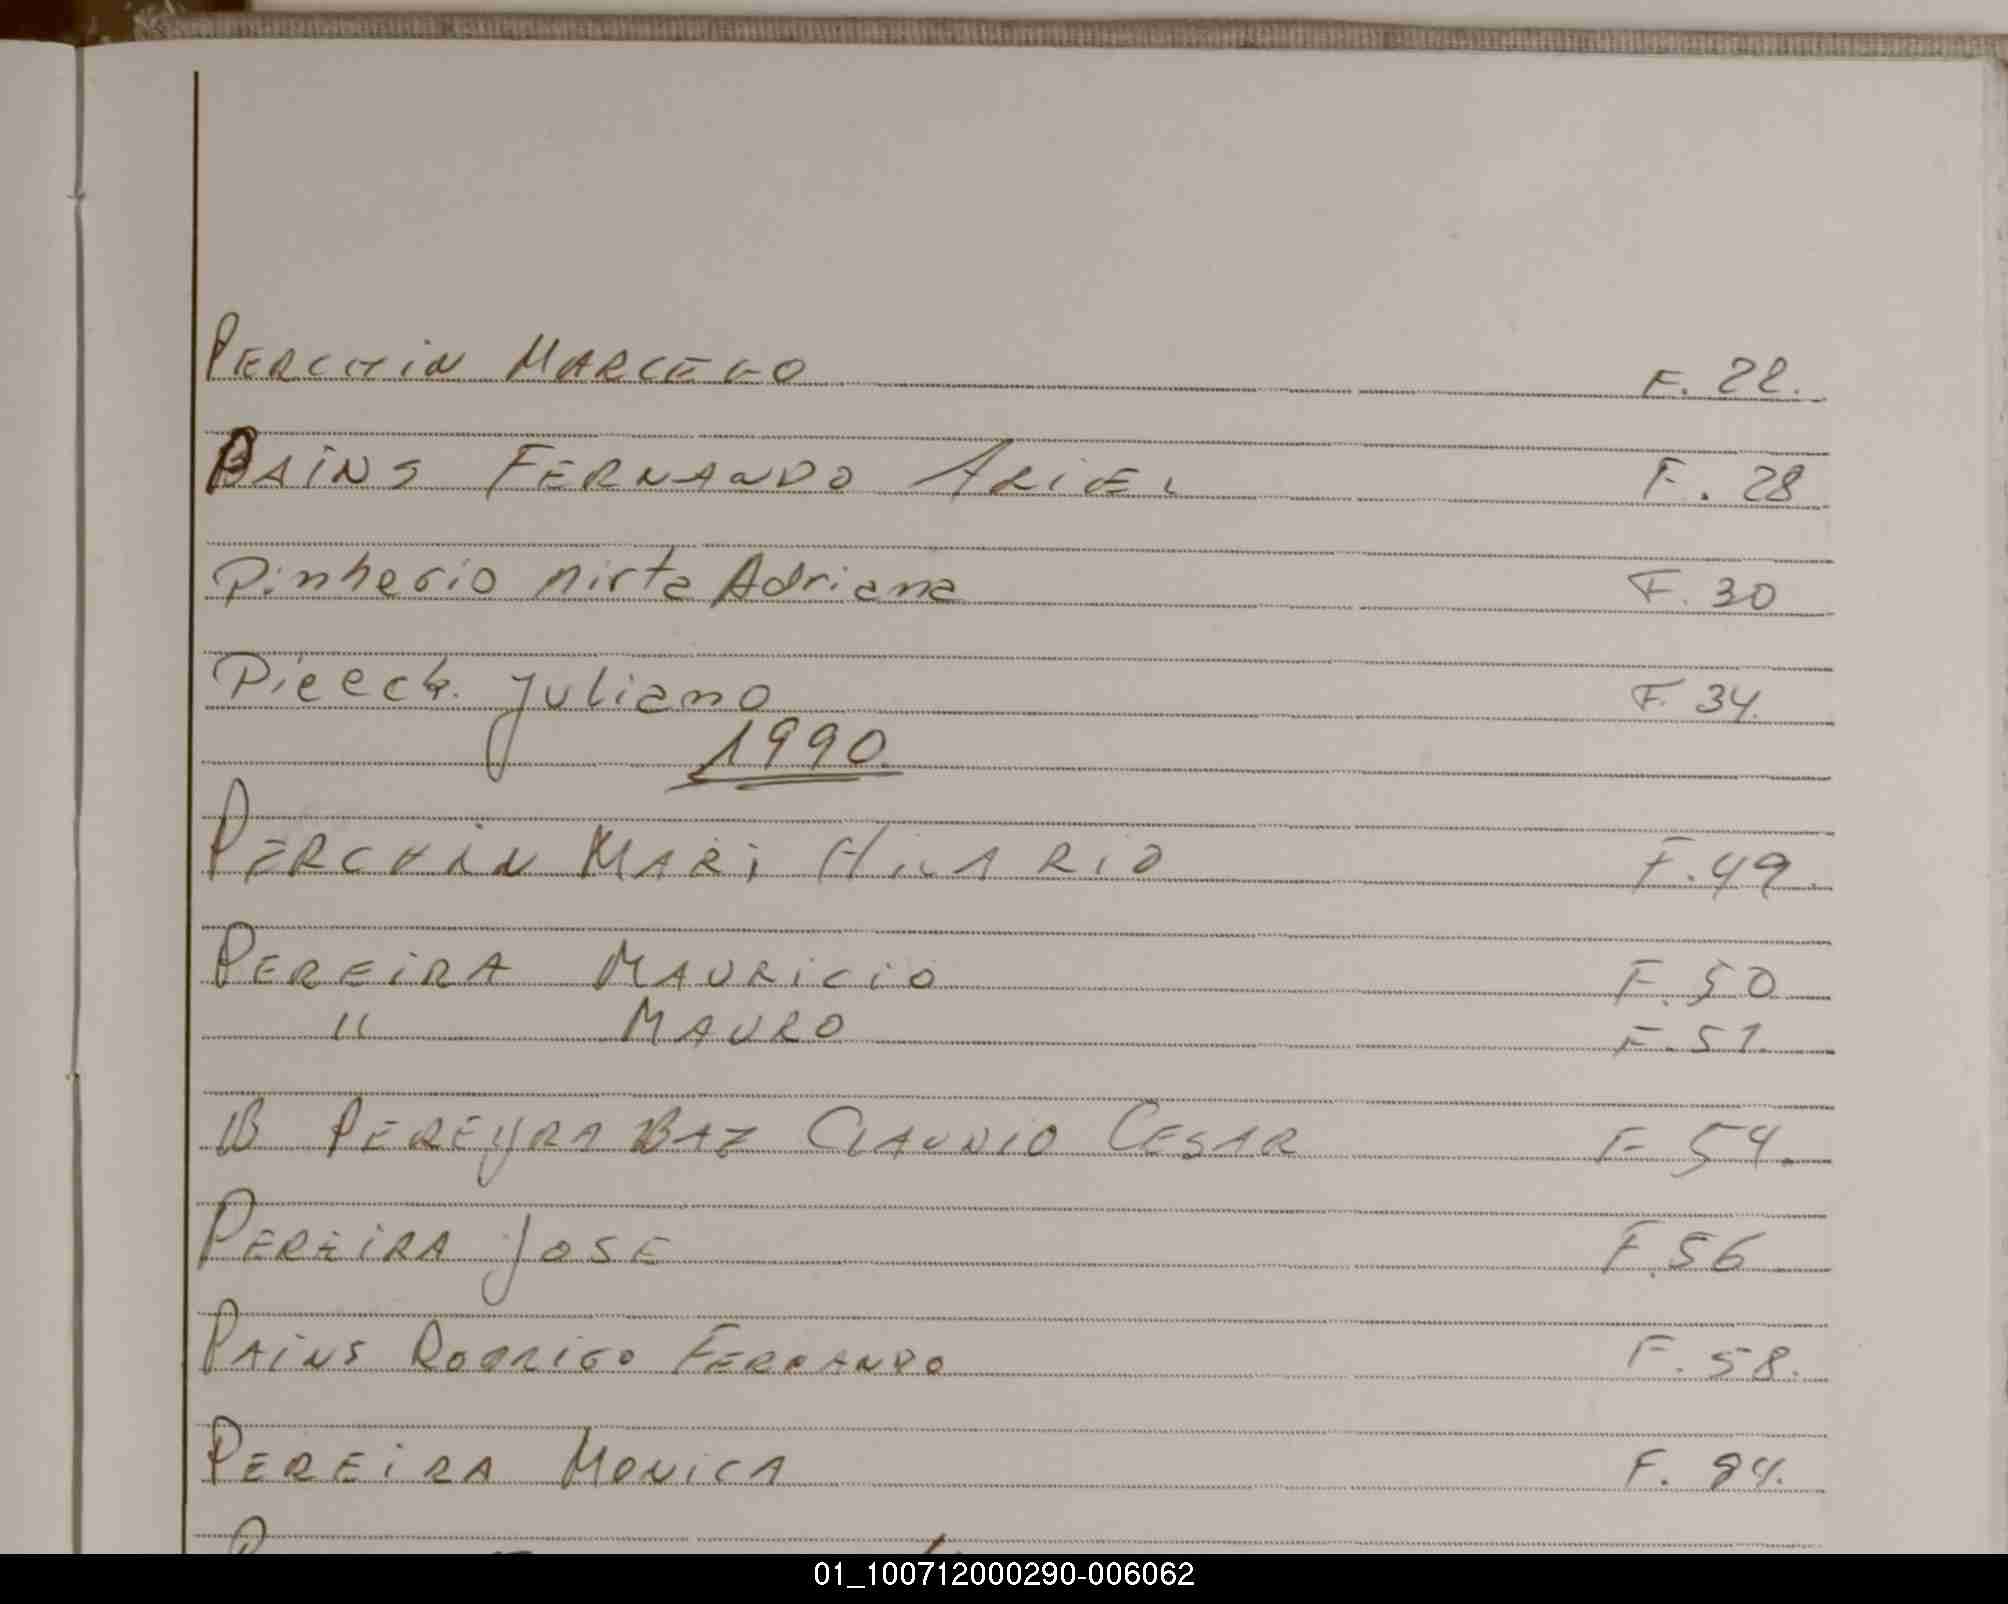 PERCHIN MARCELO F. 22.
PAINS FERNANDO ARIEL F. 28
Pinherio Mirta Adriana F. 30
Pieeck. Juliano F. 34.
1990.
PERCHIN MARI HILARIO F. 49.
PEREIRA MAURICIO F. 50
" MAURO F. 51.
B PEREYRA BAZ CLAUDIO CESAR F 54.
PEREIRA JOSE F. 56
PAINS RODRIGO FERNANDO F. 58.
PEREIRA MONICA F. 84.
01_100712000290-006062